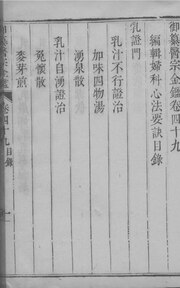 御纂醫宗金鑑卷四十九
編輯婦科心法要訣目錄
乳證門
乳汁不行證治
加味四物湯
湧泉散
乳汁自湧證治
免懷散
麥芽煎
卷四十九目錄